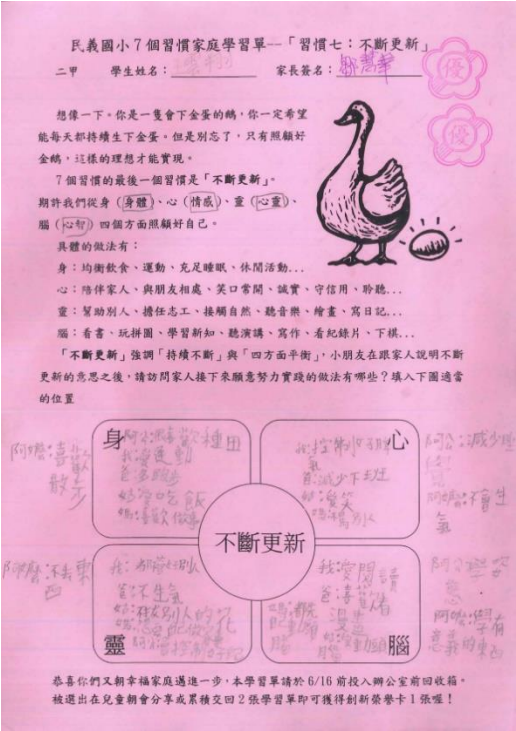 民義國小7個習慣家庭學習單--「習慣七：不斷更新」
二甲 學生姓名： 家長簽名：
優
優
想像一下。你是一隻會下金蛋的鵝，你一定希望
能每天都持續生下金蛋。但是別忘了，只有照顧好
金鵝，這樣的理想才能實現。
7個習慣的最後一個習慣是「不斷更新」。
期許我們從身（身體）、心（情感）、靈（心靈）、
腦（心智）四個方面照顧好自己。
具體的做法有：
身：均衡飲食、運動、充足睡眠、休閒活動...
心：陪伴家人、與朋友相處、笑口常開、誠實、守信用、聆聽...
靈：幫助別人、擔任志工、接觸自然、聽音樂、繪畫、寫日記...
腦：看書、玩拼圖、學習新知、聽演講、寫作、看紀錄片、下棋...
「不斷更新」強調「持續不斷」與「四方面平衡」，小朋友在跟家人說明不斷
更新的意思之後，請訪問家人接下來願意努力實踐的做法有哪些？填入下圖適當
的位置
身
阿公：喜歡種田
我：愛運動
奶：吃飯
媽：喜歡做事
阿嬤：喜歡散步
心
氣
爸：減少下班
奶：愛笑
阿公：減少
阿嬤：不會生氣
不斷更新
靈
爸：不生氣
腦
我：愛閱讀
阿公：學習
阿嬤：學有意義的東西
恭喜你們又朝幸福家庭邁進一步，本學習單請於6/16前投入辦公室前回收箱。
被選出在兒童朝會分享或累積交回2張學習單即可獲得創新榮譽卡1張喔！